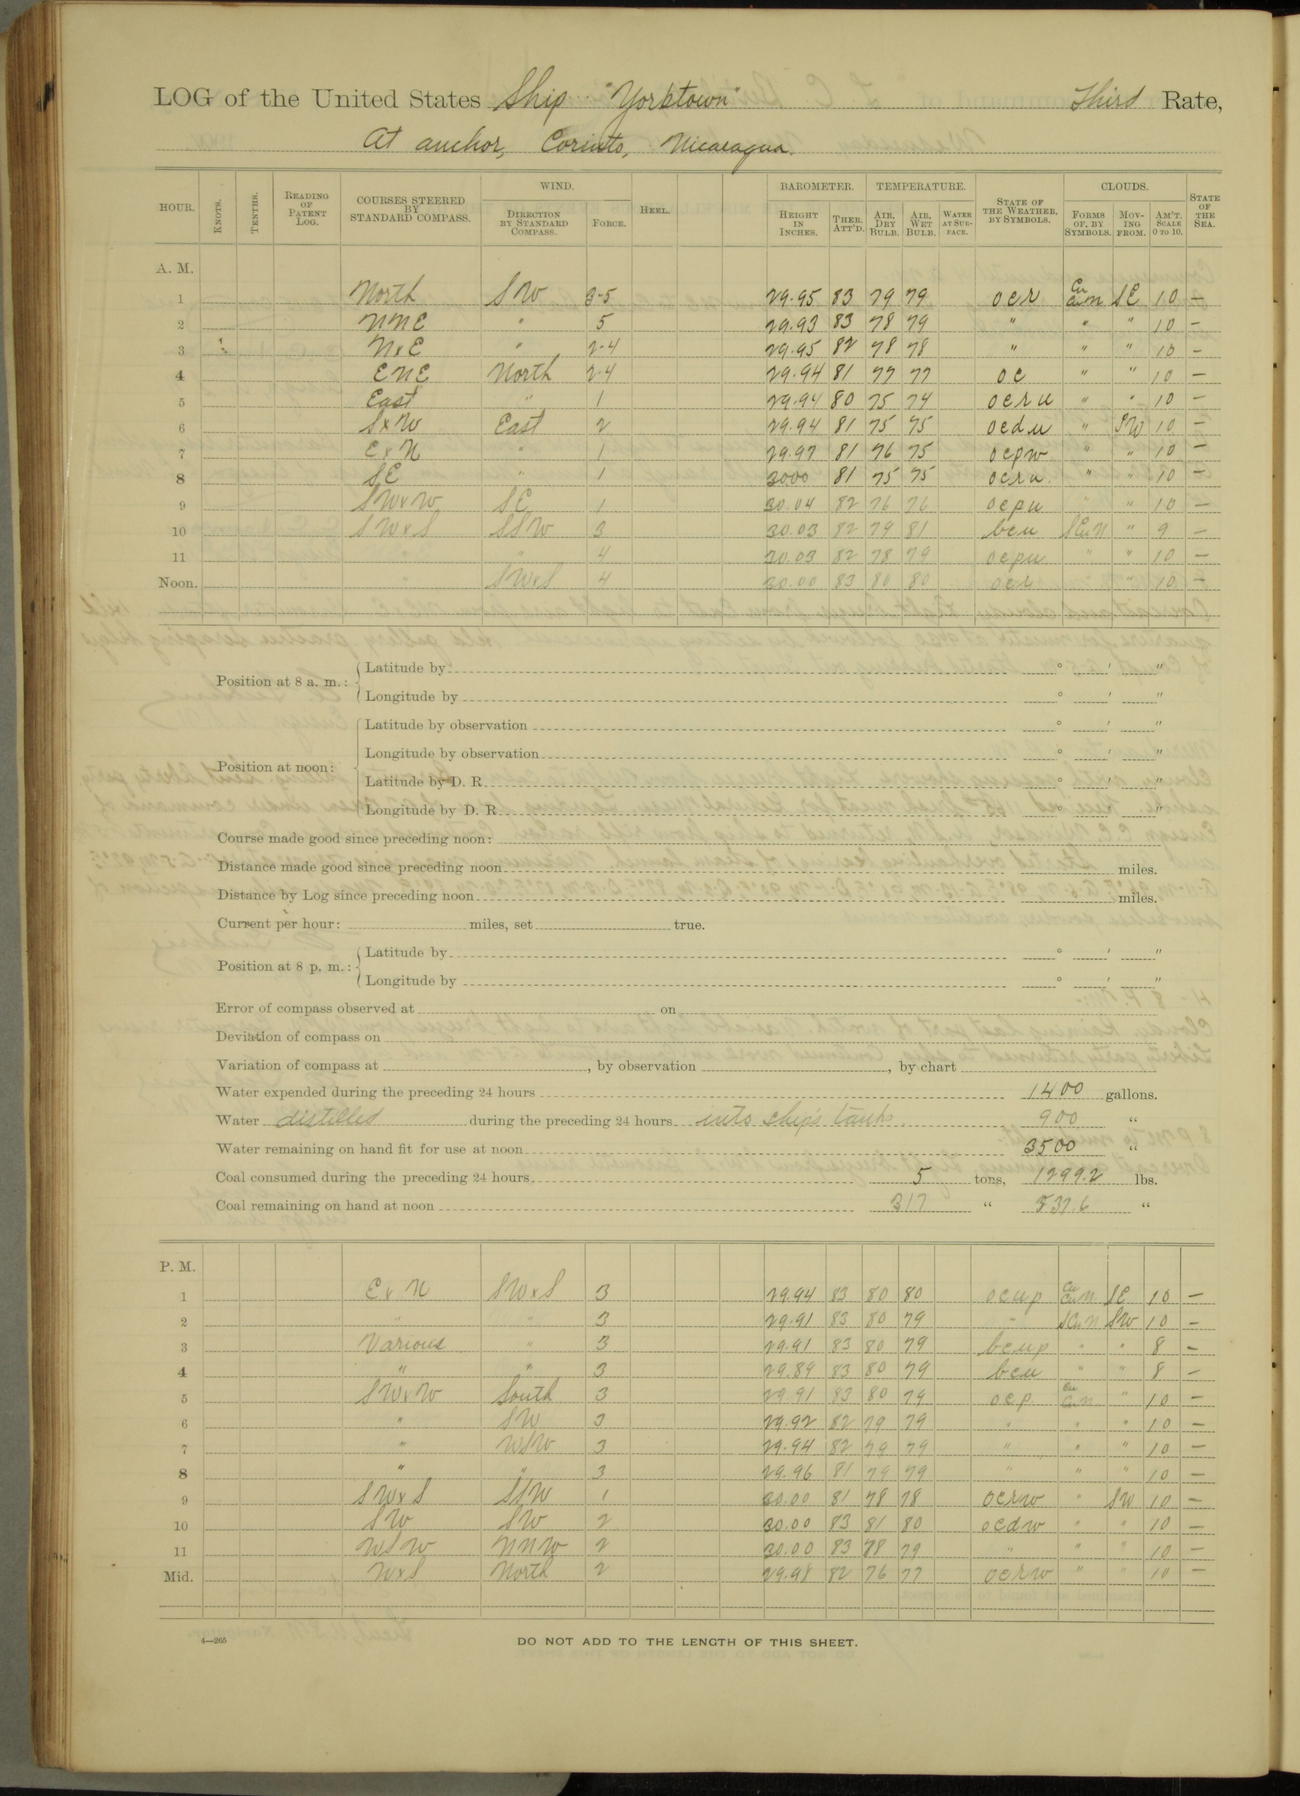 LOG of the United States Ship "Yorktown" Third Rate,
At anchor, Corinto, Nicaragua.
HOUR. KNOTS. TENTHS. READING OF PATENT LOG. COURSES STEERED BY STANDARD COMPASS. WIND. DIRECTION BY STANDARD COMPASS. FORCE. HEEL. BAROMETER. HEIGHT IN INCHES. THER. ATT'D. TEMPERATURE. AIR, DRY BULB. AIR, WET BULB. WATER AT SURFACE. STATE OF THE WEATHER, BY SYMBOLS. CLOUDS. FORMS OF, BY SYMBOLS. MOVING FROM. AM'T. SCALE 0 TO 10. STATE OF THE SEA.
A. M.
1 North SW 3-5 29.95 83 79 79 ocr Cu CuN SE 10 —
2 NNE " 5 29.93 83 78 79 " " " 10 —
3 NxE " 2-4 29.95 82 78 78 " " " 10 —
4 ENE North 2-4 29.94 81 77 77 oc " " 10 —
5 East " 1 29.94 80 75 74 ocru " " 10 —
6 SxW East 2 29.94 81 75 75 ocdu " SW 10 —
7 ExN " 1 29.97 81 76 75 ocpw " " 10 —
8 SE " 1 3000 81 75 75 ocru " " 10 —
9 SWxW SE 1 30.04 82 76 76 ocpu " " 10 —
10 SWxS SSW 3 30.03 82 79 81 bcu SCuN " 9 —
11 " " 4 30.03 82 78 79 ocpu " " 10 —
Noon. " SWxS 4 30.00 83 80 80 ocr " " 10 —
Position at 8 a. m.: Latitude by ° ' "
Longitude by ° ' "
Position at noon: Latitude by observation ° ' "
Longitude by observation ° ' "
Latitude by D. R. ° ' "
Longitude by D. R. ° ' "
Course made good since preceding noon:
Distance made good since preceding noon miles.
Distance by Log since preceding noon miles.
Current per hour: miles, set true.
Position at 8 p. m.: Latitude by ° ' "
Longitude by ° ' "
Error of compass observed at on
Deviation of compass on
Variation of compass at , by observation , by chart
Water expended during the preceding 24 hours 1400 gallons.
Water distilled during the preceding 24 hours into ship's tanks. 900 "
Water remaining on hand fit for use at noon 3500 "
Coal consumed during the preceding 24 hours 5 tons, 1299.2 lbs.
Coal remaining on hand at noon 317 " 537.6 "
P. M.
1 ExN SWxS 3 29.94 83 80 80 ocup Cu CuN SE 10 —
2 " " 3 29.91 83 80 79 " SCuN SW 10 —
3 Various " 3 29.91 83 80 79 bcup " " 8 —
4 " " 3 29.89 83 80 79 bcu " " 8 —
5 SWxW South 3 29.91 83 80 79 ocp Cu CuN " 10 —
6 " SW 3 29.92 82 79 79 " " " 10 —
7 " WSW 3 29.94 82 79 79 " " " 10 —
8 " " 3 29.96 81 79 79 " " " 10 —
9 SWxS SSW 1 30.00 81 78 78 ocrw " SW 10 —
10 SW SW 2 30.00 83 81 80 ocdw " " 10 —
11 WSW NNW 2 30.00 83 78 79 " " " 10 —
Mid. WxS North 2 29.98 82 76 77 ocrw " " 10 —
4—265
DO NOT ADD TO THE LENGTH OF THIS SHEET.